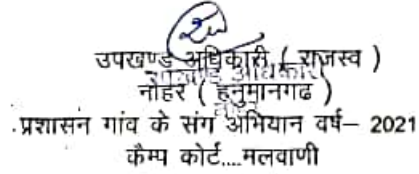 उपखण्ड अधिकारी ( राजस्व )
नोहर ( हनुमानगढ )
प्रशासन गांव के संग अभियान वर्ष– 2021
कैम्प कोर्ट....मलवाणी